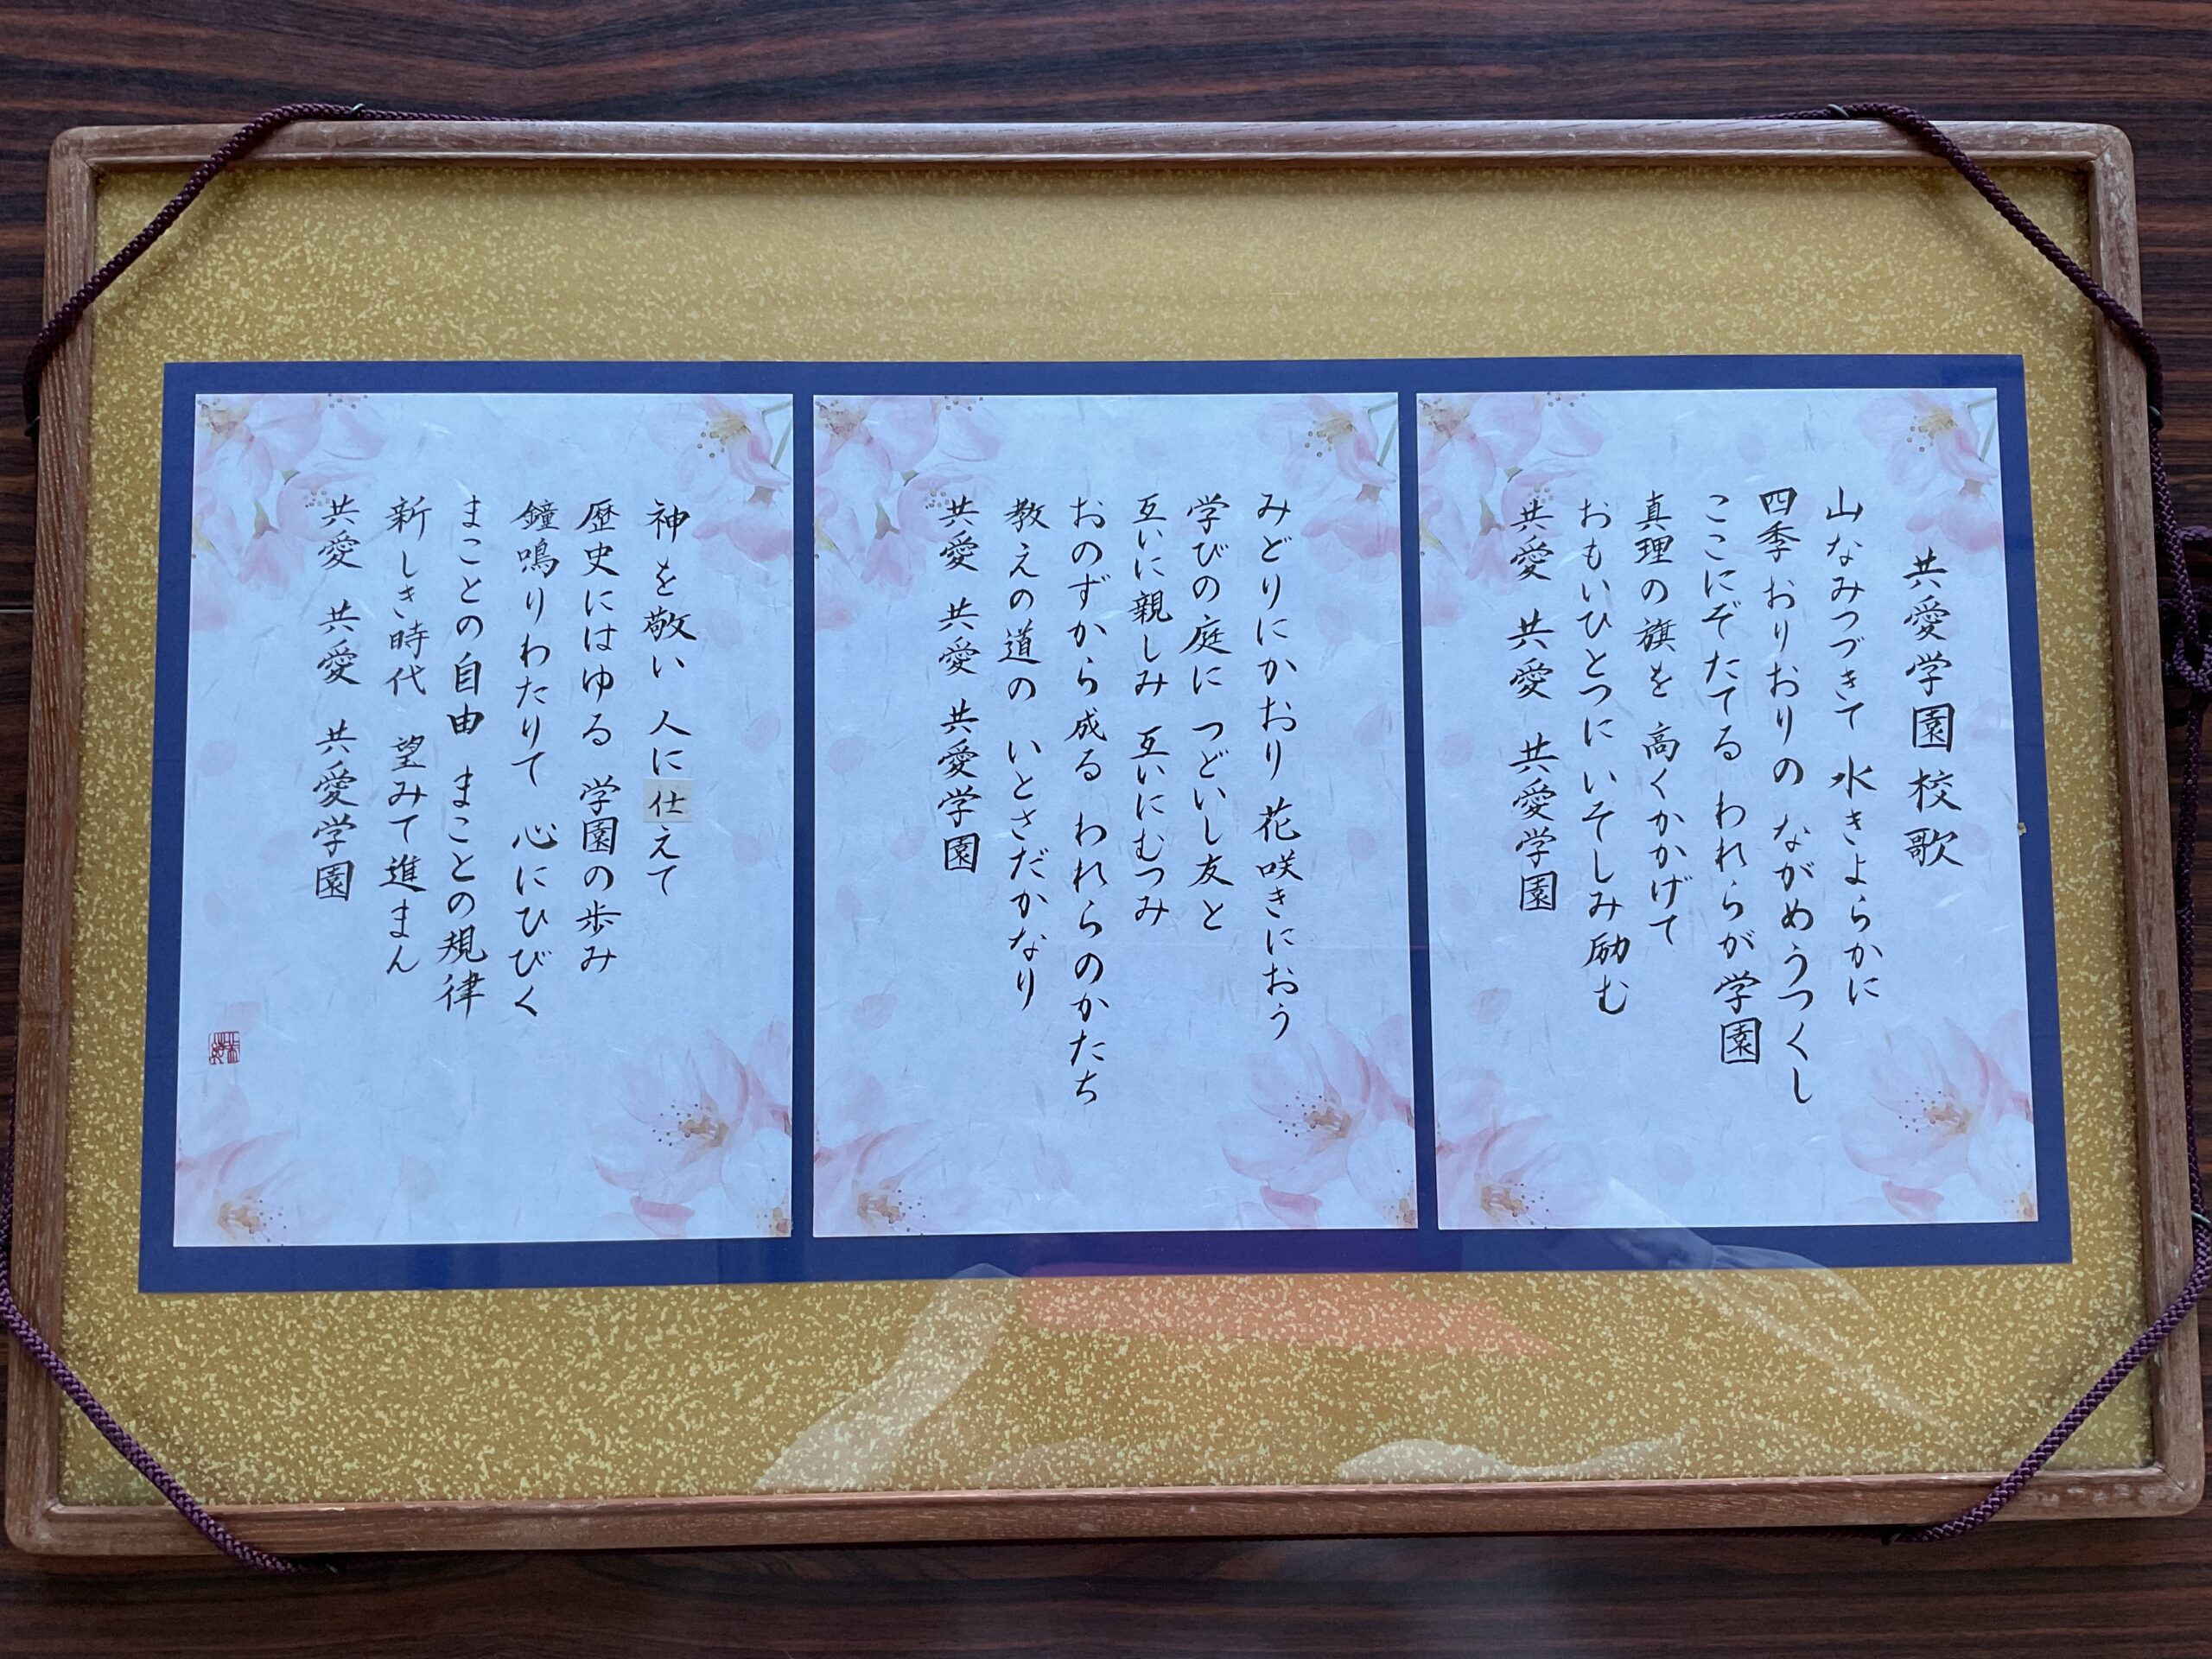 共愛学園校歌
山なみつづきて 水きよらかに
四季おりおりの ながめうつくし
ここにぞたてる われらが学園
真理の旗を 高くかかげて
おもいひとつにいそしみ励む
共愛 共愛 共愛学園
みどりにかおり 花咲きにおう
学びの庭に つどいし友と
互いに親しみ 互いにむつみ
おのずから成る われらのかたち
教えの道の いとさだかなり
共愛 共愛 共愛学園
神を敬い 人に仕えて
歴史にはゆる 学園の歩み
鐘鳴りわたりて 心にひびく
まことの自由 まことの規律
新しき時代 望みて進まん
共愛 共愛 共愛学園